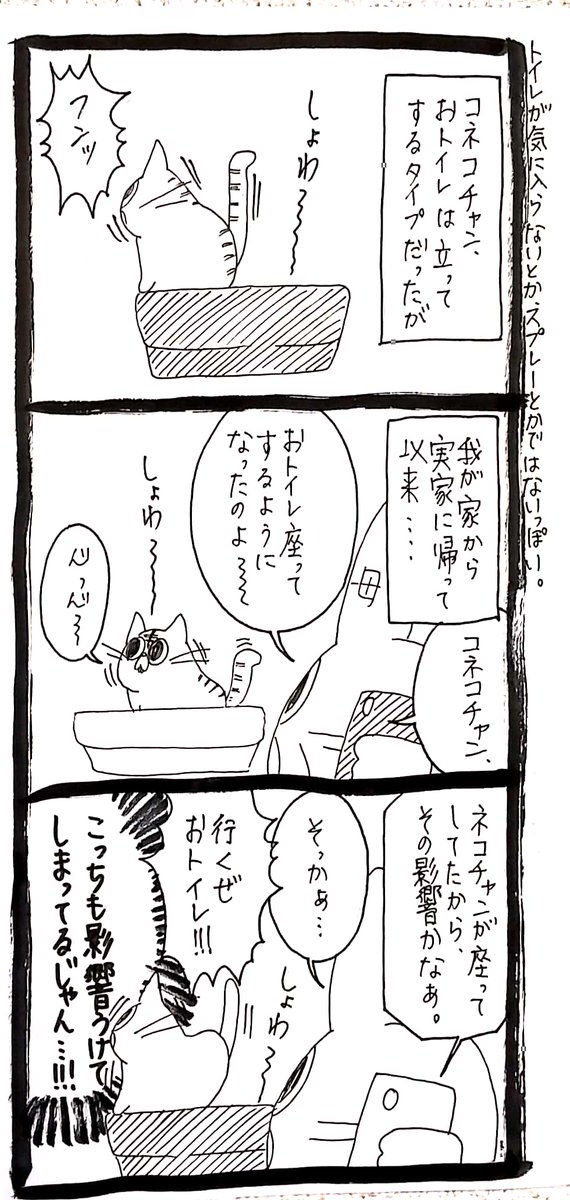 トイレが気に入らないとか、スプレーとかではないっぽい。
コネコチャン、
おトイレは立って
するタイプだったが
しょわ〜〜〜
フンッ
我が家から
実家に帰って
以来‥‥
コネコチャン、
おトイレ座って
するように
なったのよ〜〜
しょわ〜〜〜
ネコチャンが座って
してたから、
その影響かなぁ。
そっかぁ…
行くぜ
おトイレ!!!
しょわ〜〜
こっちも影響うけて
しまってるじゃん…!!!